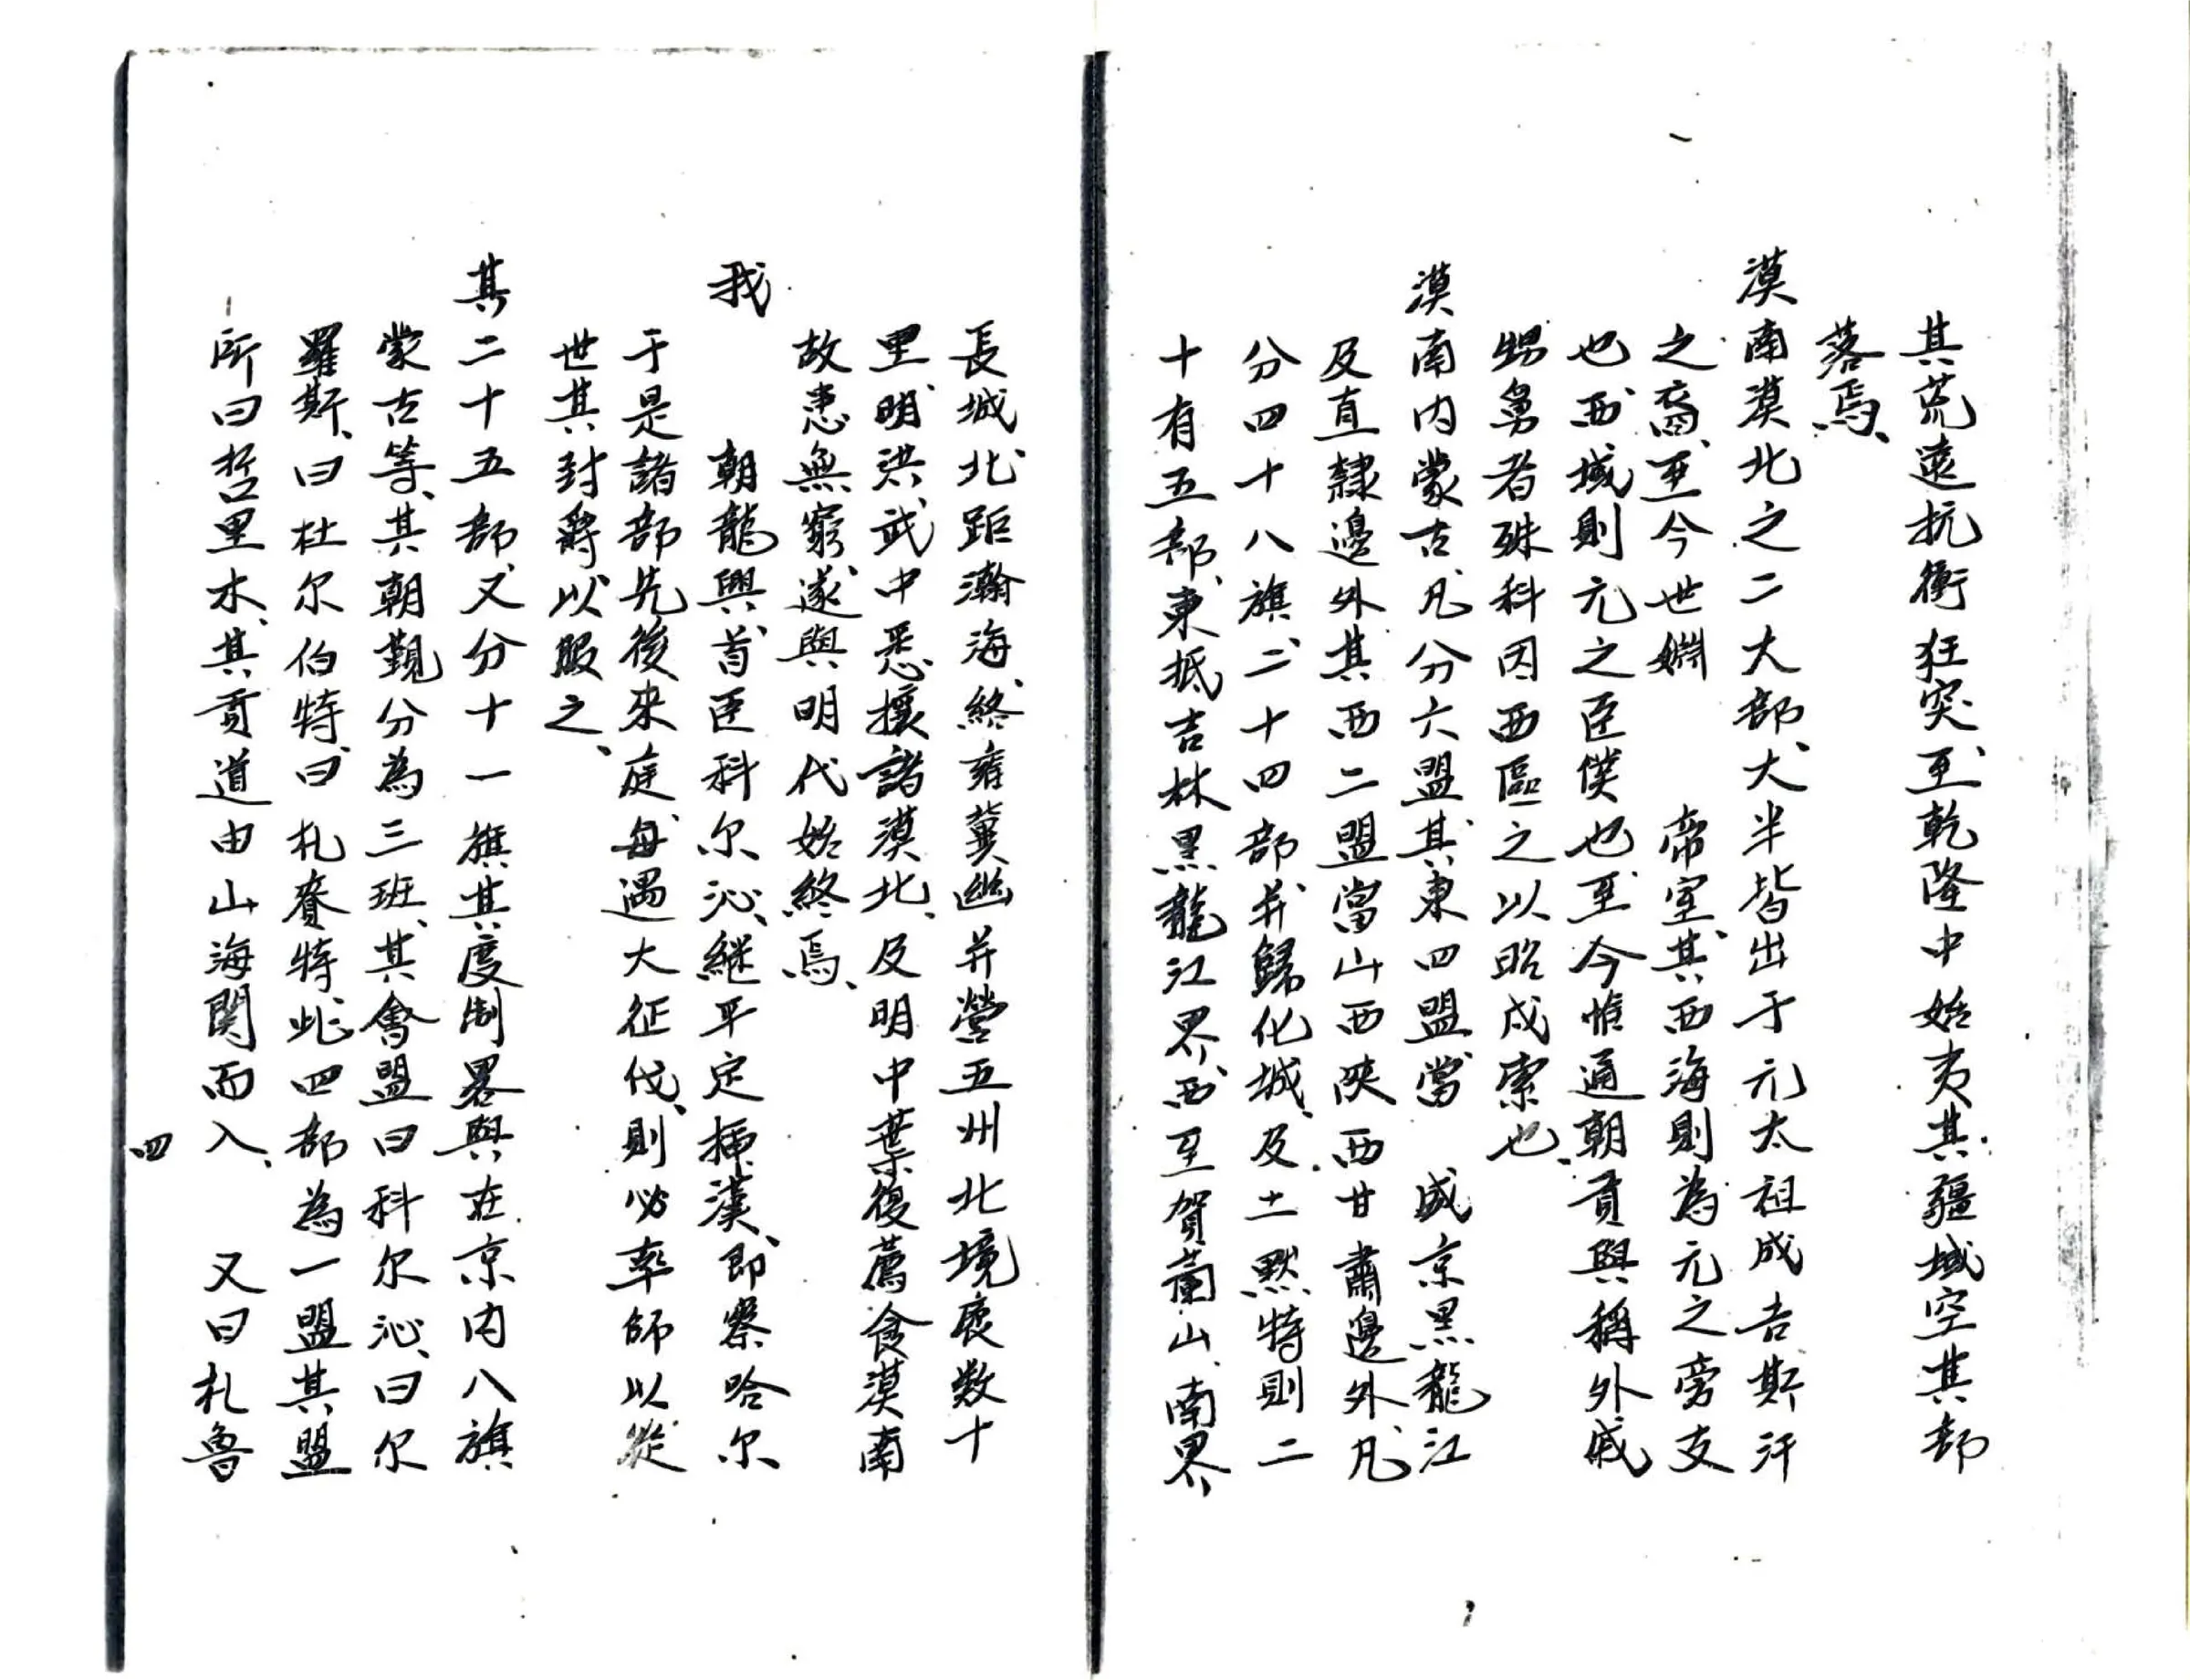 其荒遠抗衝狂突、至乾隆中始夷其疆域空其部
落焉、
漠南漠北之二大部、大半皆出于元太祖成吉斯汗
之裔、至今世婣　帝室、其西海則為元之旁支
也、西域則元之臣僕也、至今惟通朝貢與稱外戚
甥舅者殊科因西區之以昭戍索也、
漠南內蒙古、凡分六盟、其東四盟、當　盛京黑龍江
及直隸邊外其西二盟當山西陝西甘肅邊外、凡
分四十八旗、二十四部、并歸化城、及土黙特則二
十有五部、東抵吉林黑龍江界、西至賀蘭山、南界
長城、北距瀚海、絡雍冀幽并營五州北境袤数十
里、明洪武中悉攘諸漠北、及明中葉復薦食漠南
故患無窮、遂與明代始終焉、
我　朝龍興、首臣科尔沁、継平定插漢、即察哈尔
于是諸部先後來庭、每遇大征伐、則必率師以從
世其封爵以服之、
其二十五部、又分十一旗其度制畧與在京內八旗
蒙古等、其朝覲分為三班、其會盟曰科尔沁、曰尔
羅斯、曰杜尔伯特、曰札賚特、此四部為一盟其盟
所曰哲里木、其貢道由山海関而入、　又曰札魯
四